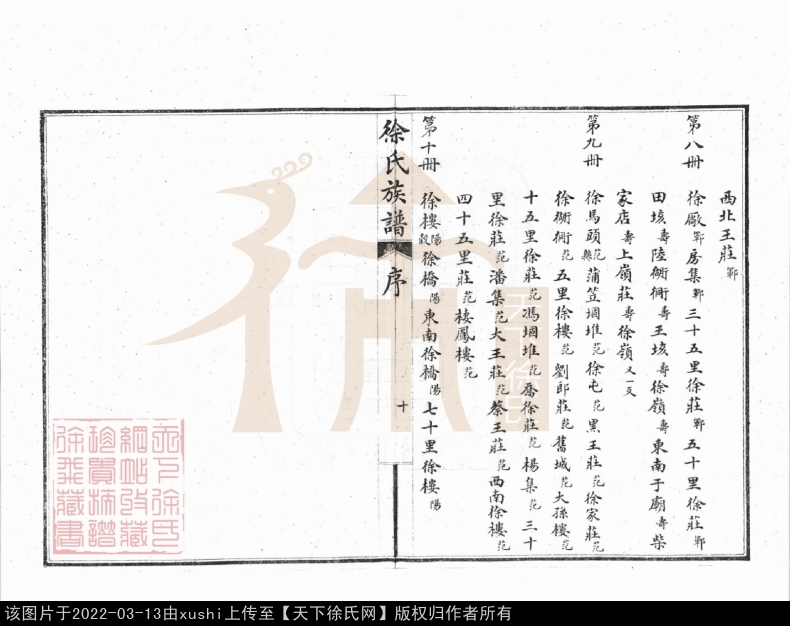 西北王莊鄆
第八冊 徐廠鄆房集鄆三十五里徐莊鄆五十里徐莊鄆
田垓壽陸衚衕壽王垓壽徐嶺壽東南于廟壽柴
家店壽上嶺莊壽徐嶺又一支
第九冊 徐馬頭范縣蒲笠堌堆范徐屯范黑王莊范徐家莊范
徐衚衕范五里徐樓范劉郎莊范舊城范大孫樓范
十五里徐莊范馮堌堆范喬徐莊范楊集范三十
里徐莊范潘集范大王莊范蔡王莊范西南徐樓范
四十五里莊范棲鳳樓范
第十冊 徐樓陽穀徐橋陽東南徐橋陽七十里徐樓陽
徐氏族譜 序 十
天下徐氏
天下徐氏
網站收藏
珍貴族譜
徐彝藏書
该图片于2022-03-13由xushi上传至【天下徐氏网】版权归作者所有